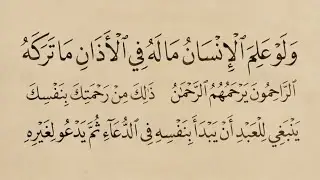 وَلَوْ عَلِمَ ٱلْإِنْسَانُ مَا لَهُ فِي ٱلْأَذَانِ مَا تَرَكَهُ
ٱلرَّاحِمُونَ يَرْحَمُهُمُ ٱلرَّحْمَٰنُ ذَٰلِكَ مِنْ رَحْمَتِكَ بِنَفْسِكَ
يَنْبَغِي لِلْعَبْدِ أَنْ يَبْدَأَ بِنَفْسِهِ فِي ٱلدُّعَآءِ ثُمَّ يَدْعُو لِغَيْرِهِ